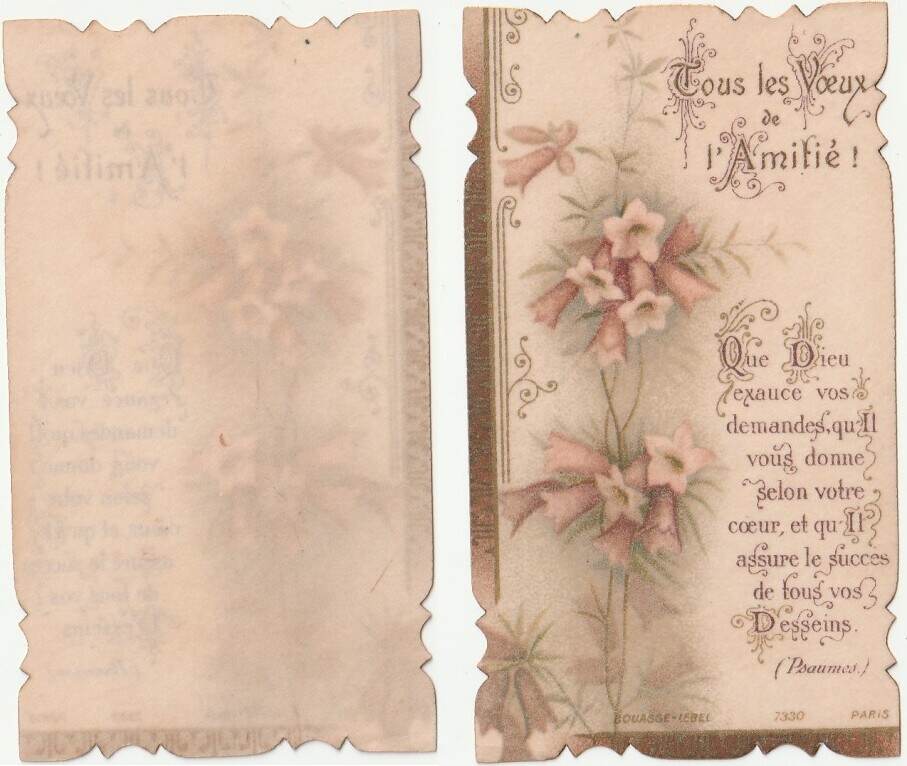 Tous les Vœux
de
l'Amitié !
Que Dieu
exauce vos
demandes, qu'Il
vous donne
selon votre
cœur, et qu'Il
assure le succès
de tous vos
Desseins.
(Psaumes.)
BOUASSE-LEBEL 7330 PARIS